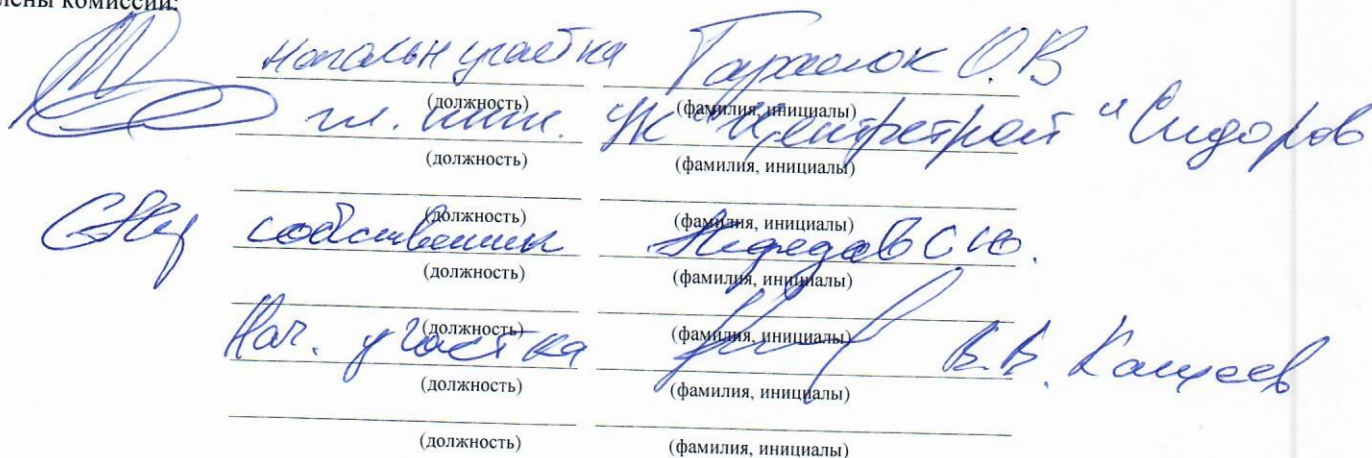 лены комиссии:
начальн участка О.В
(должность) (фамилия, инициалы)
гл. инж. УК "Центрстрой" Сидоров
(должность) (фамилия, инициалы)
(должность) (фамилия, инициалы)
собственник Нефедов С Ю.
(должность) (фамилия, инициалы)
(должность) (фамилия, инициалы)
Нач. участка В.В. Кащеев
(должность) (фамилия, инициалы)
(должность) (фамилия, инициалы)